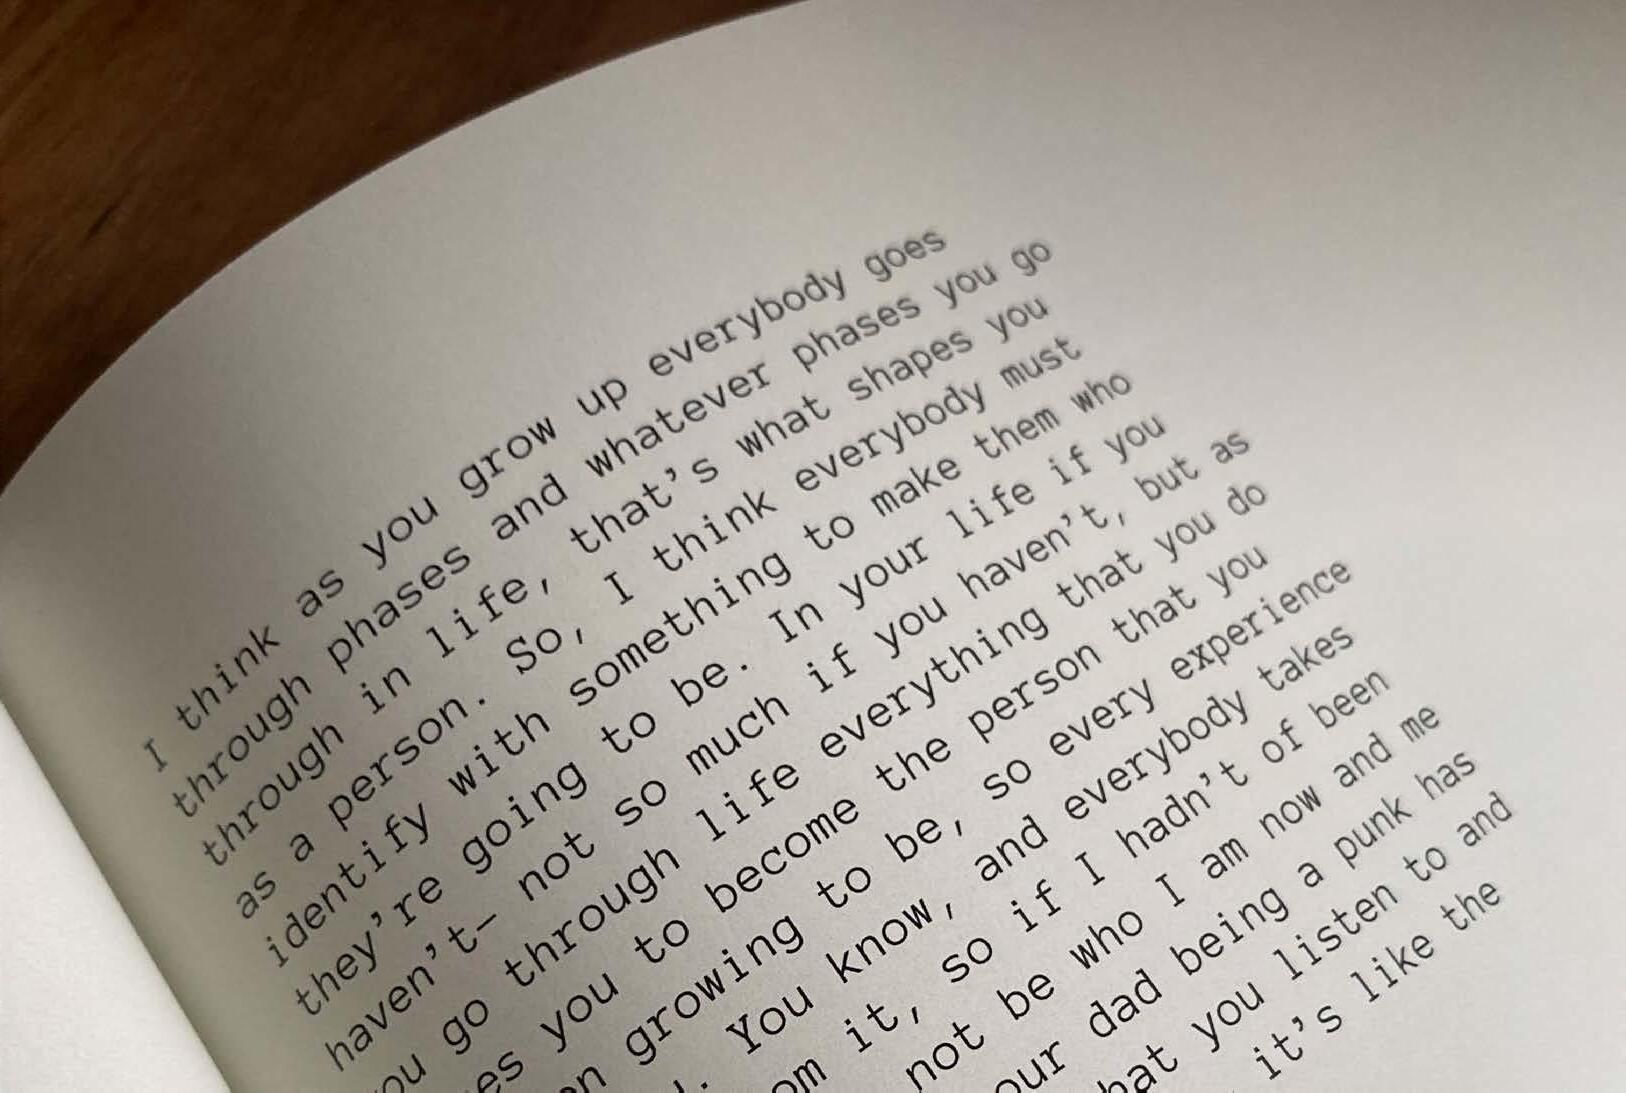 I think as you grow up everybody goes
through phases and whatever phases you go
through in life, that's what shapes you
as a person. So, I think everybody must
identify with something to make them who
they're going to be. In your life if you
haven't— not so much if you haven't, but as
you go through life everything that you do
you to become the person that you
growing to be, so every experience
You know, and everybody takes
it, so if I hadn't of been
not be who I am now and me
dad being a punk has
you listen to and
it's like the